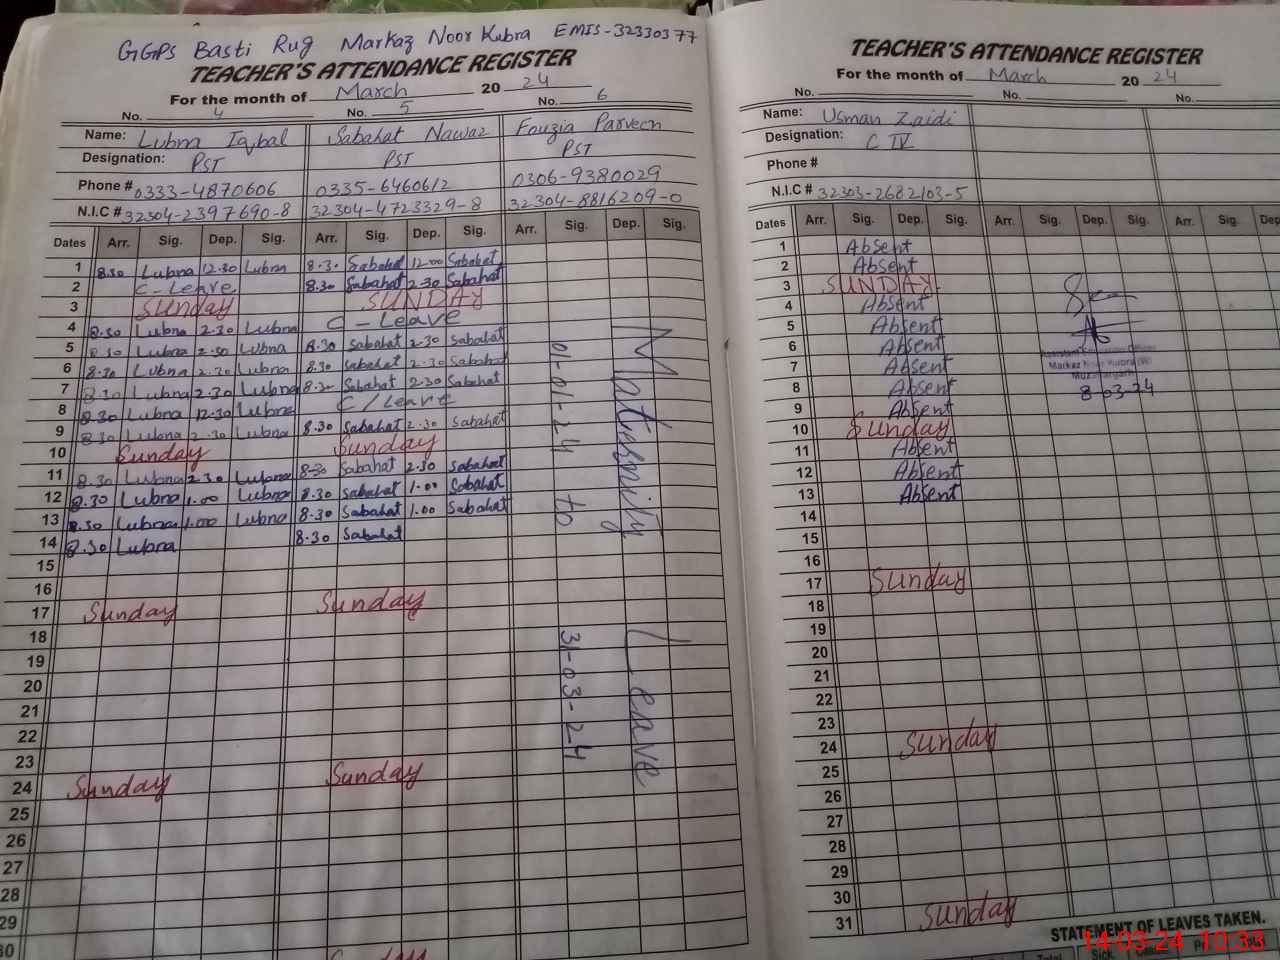 GGPS Basti Rug Markaz Noor Kubra EMIS-32330377
TEACHER'S ATTENDANCE REGISTER
For the month of March 20 24
No. 4 No. 5 No. 6
Name: Lubna Iqbal Sabahat Nawaz Fouzia Parveen
Designation: PST PST PST
Phone # 0333-4870606 0335-6460612 0306-9380029
N.I.C # 32304-2397690-8 32304-4723329-8 32304-8816209-0
Dates Arr. Sig. Dep. Sig. Arr. Sig. Dep. Sig. Arr. Sig. Dep. Sig.
1 8.30 Lubna 12.30 Lubna 8.30 Sabahat 12.00 Sabahat
2 C-Leave 8.30 Sabahat 2.30 Sabahat
3 Sunday SUNDAY
4 8.30 Lubna 2.30 Lubna C-Leave
5 8.30 Lubna 2.30 Lubna 8.30 Sabahat 2.30 Sabahat
6 8.30 Lubna 2.30 Lubna 8.30 Sabahat 2.30 Sabahat
7 8.30 Lubna 2.30 Lubna 8.30 Sabahat 2.30 Sabahat
8 8.30 Lubna 12.30 Lubna C/Leave
9 8.30 Lubna 2.30 Lubna 8.30 Sabahat 2.30 Sabahat
10 Sunday Sunday
11 8.30 Lubna 2.30 Lubna 8.30 Sabahat 2.30 Sabahat
12 8.30 Lubna 1.00 Lubna 8.30 Sabahat 1.00 Sabahat
13 8.30 Lubna 1.00 Lubna 8.30 Sabahat 1.00 Sabahat
14 8.30 Lubna 8.30 Sabahat
15
16
17 Sunday Sunday
18
19
20
21
22
23
24 Sunday Sunday
25
26
27
28
29
30
Maternity Leave
01-01-24 to 31-03-24
TEACHER'S ATTENDANCE REGISTER
For the month of March 20 24
No. No. No.
Name: Usman Zaidi
Designation: C IV
Phone #
N.I.C # 32303-2682103-5
Dates Arr. Sig. Dep. Sig. Arr. Sig. Dep. Sig. Arr. Sig.
1 Absent
2 Absent
3 SUNDAY
4 Absent
5 Absent
6 Absent
7 Absent
8 Absent
9 Absent
10 Sunday
11 Absent
12 Absent
13 Absent
14
15
16
17 Sunday
18
19
20
21
22
23
24 Sunday
25
26
27
28
29
30
31 Sunday
8-03-24
STATEMENT OF LEAVES TAKEN.
14-03-24 10:33